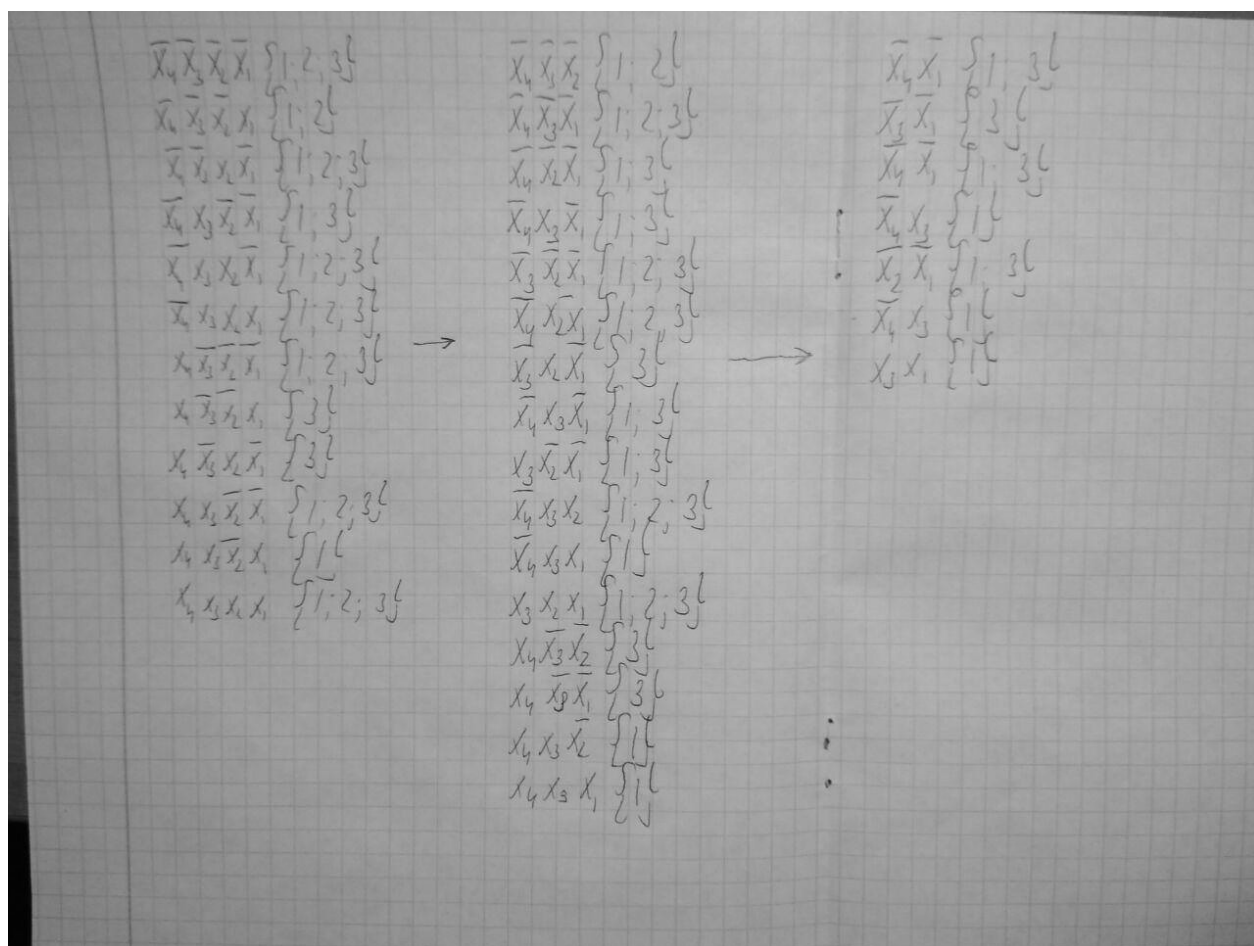 X̄₄ X̄₃ X̄₂ X̄₁ {1; 2; 3}
X̄₄ X̄₃ X̄₂ X₁ {1; 2}
X̄₄ X̄₃ X₂ X̄₁ {1; 2; 3}
X̄₄ X₃ X̄₂ X̄₁ {1; 3}
X̄₄ X₃ X₂ X̄₁ {1; 2; 3}
X̄₄ X₃ X₂ X₁ {1; 2; 3}
X₄ X̄₃ X̄₂ X̄₁ {1; 2; 3}
X₄ X̄₃ X̄₂ X₁ {3}
X₄ X̄₃ X₂ X̄₁ {3}
X₄ X₃ X̄₂ X̄₁ {1; 2; 3}
X₄ X₃ X̄₂ X₁ {1}
X₄ X₃ X₂ X₁ {1; 2; 3}
→
X̄₄ X̄₃ X̄₂ {1; 2}
X̄₄ X̄₃ X̄₁ {1; 2; 3}
X̄₄ X̄₂ X̄₁ {1; 3}
X̄₄ X₃ X̄₁ {1; 3}
X̄₃ X̄₂ X̄₁ {1; 2; 3}
X̄₄ X₂ X̄₁ {1; 2; 3}
X̄₃ X₂ X̄₁ {3}
X̄₄ X₃ X̄₁ {1; 3}
X₃ X̄₂ X̄₁ {1; 3}
X̄₄ X₃ X₂ {1; 2; 3}
X̄₄ X₃ X₁ {1}
X₃ X₂ X₁ {1; 2; 3}
X₄ X̄₃ X̄₂ {3}
X₄ X̄₃ X̄₁ {3}
X₄ X₃ X̄₂ {1}
X₄ X₃ X₁ {1}
→
X̄₄ X̄₁ {1; 3}
X̄₃ X̄₁ {3}
X̄₄ X̄₁ {1; 3}
X̄₄ X₃ {1}
X̄₂ X̄₁ {1; 3}
X̄₄ X₃ {1}
X₃ X₁ {1}